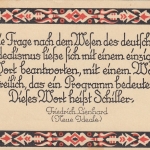 Frage nach dem Wesen des deutsch
dealismus ließe sich mit einem einzig
ort beantworten, mit einem Wo
reilich, das ein Programm bedeutet
Dieses Wort heißt Schiller.
Friedrich Lienhard
(Neue Ideale)